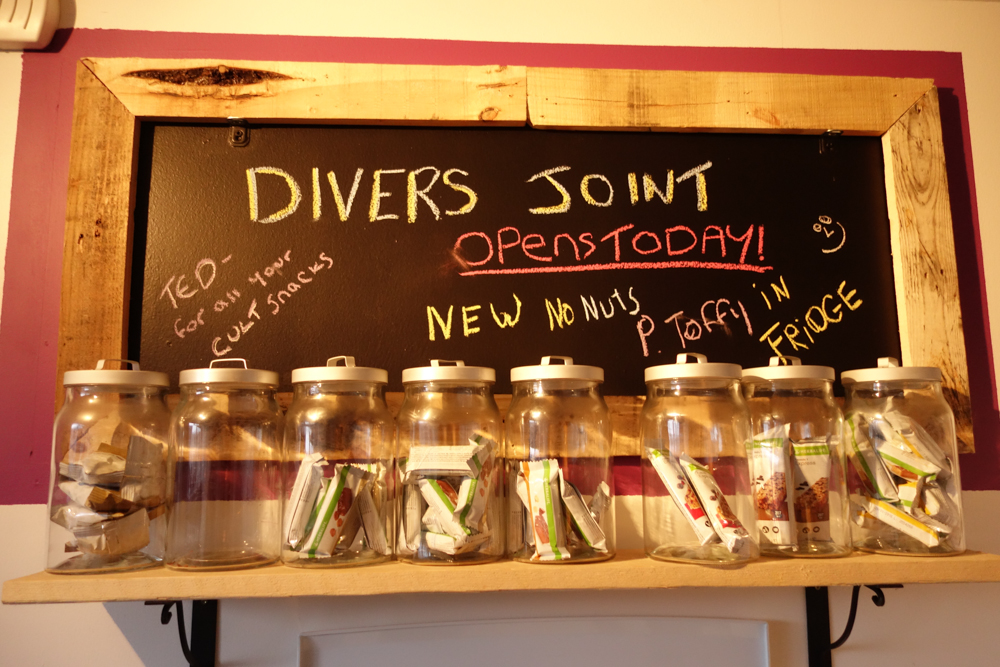 DIVERS JOINT
OPENS TODAY!
TED-
for all your
CULT SNACKS
NEW NO NUTS P. TOFFY IN
FRIDGE